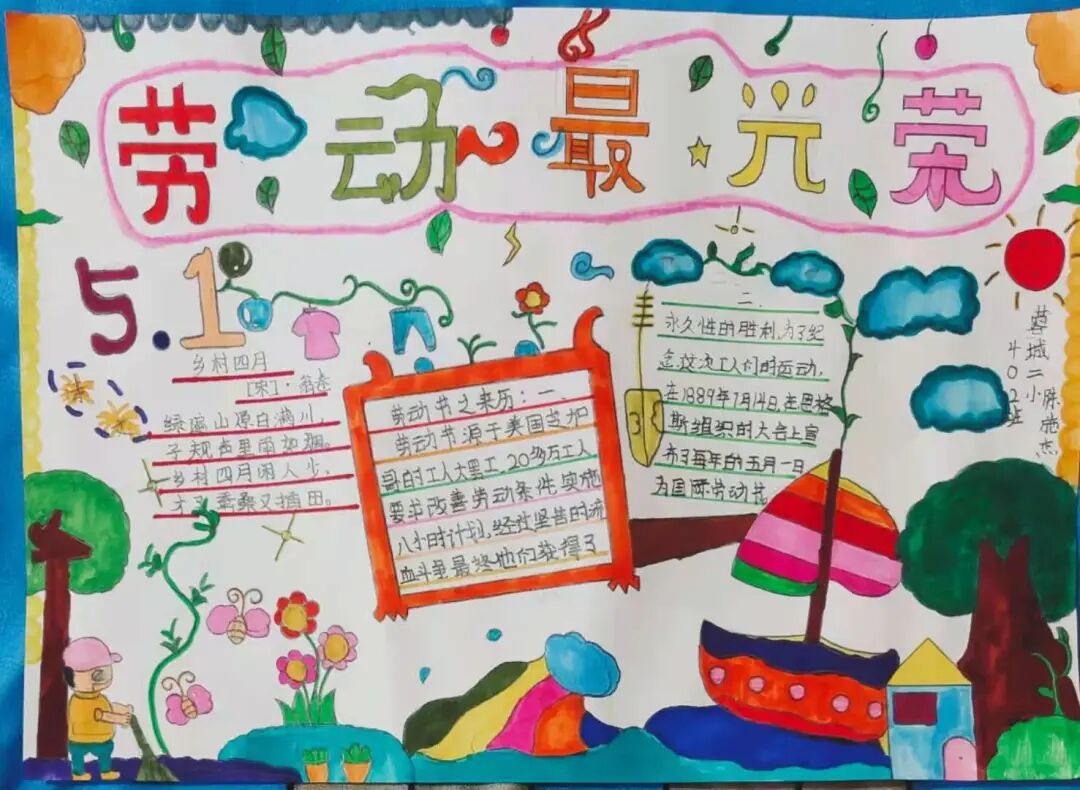 劳动最光荣
5.1
乡村四月
[宋]·翁卷
绿遍山原白满川,
子规声里雨如烟。
乡村四月闲人少,
才了蚕桑又插田。
劳动节之来历:一、
劳动节源于美国芝加
哥的工人大罢工,20多万工人
要求改善劳动条件实施
八小时计划,经过坚苦的流
血斗争最终他们获得了
二、
永久性的胜利,为了纪
念这次工人们的运动,
在1889年7月14日,在恩格
斯组织的大会上宣
布了每年的五月一日
为国际劳动节
3
城二小
402班